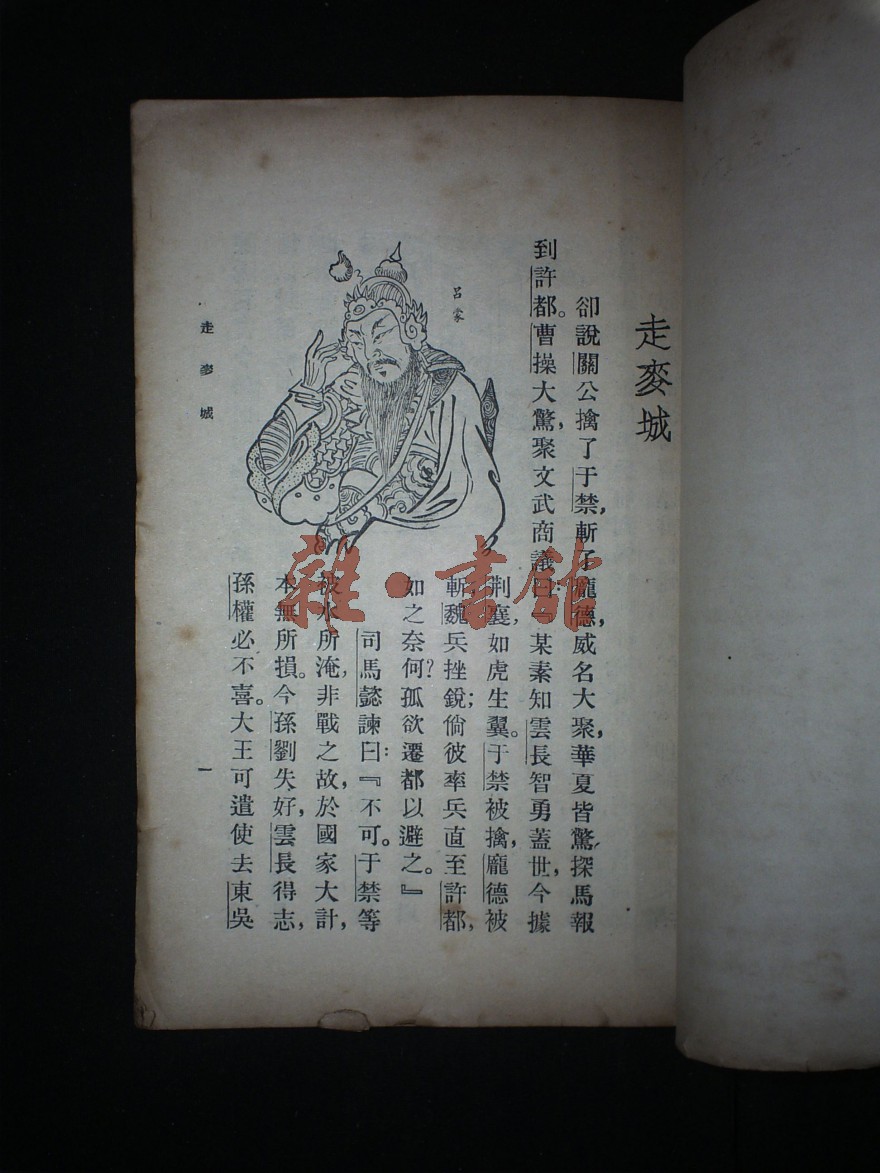 走麥城
卻說關公擒了于禁，斬了龐德，威名大聚，華夏皆驚，探馬報
到許都。曹操大驚，聚文武商議曰：『某素知雲長智勇蓋世，今據
荆襄，如虎生翼。于禁被擒，龐德被
斬，魏兵挫銳；倘彼率兵直至許都，
如之奈何？孤欲遷都以避之。』
司馬懿諫曰：『不可。于禁等
被水所淹，非戰之故，於國家大計，
本無所損。今孫劉失好，雲長得志，
孫權必不喜。大王可遣使去東吳
呂蒙
走麥城
一
雜·書館